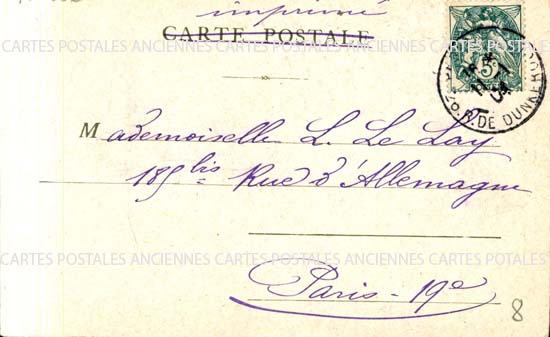 imprimé
CARTE POSTALE
CARTES POSTALES ANCIENNES CARTES POSTALES ANCIENNES CARTES POSTALES
5
R. DE DUNKER
Mademoiselle L. Le Lay
185 bis Rue d'Allemagne
CARTES POSTALES ANCIENNES CARTES POSTALES ANCIENNES CARTES POTALES
Paris - 19e
8